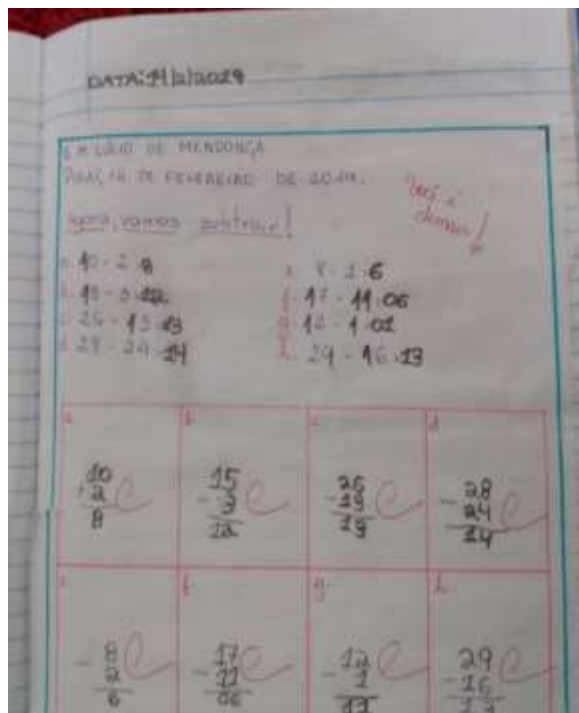 DATA: 14/2/2019
E M LÚCIO DE MENDONÇA
PIRAÍ, 14 DE FEVEREIRO DE 2019.
Agora, vamos subtrair!
Você é demais!
a. 10 - 2 = 8
b. 15 - 3 = 12
c. 26 - 13 = 13
d. 28 - 24 = 14
e. 8 - 2 = 6
f. 17 - 11 = 06
g. 12 - 1 = 01
h. 29 - 16 = 13
a. b. c. d.
10
- 2
8
15
- 3
12
26
- 13
13
28
- 24
14
e. f. g. h.
8
- 2
6
17
- 11
06
12
- 1
11
29
- 16
13